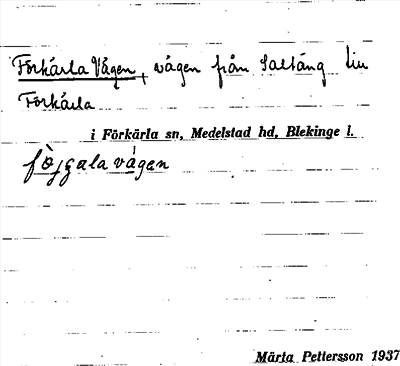 Förkärla Vägen, vägen från Saltäng till
Förkärla
i Förkärla sn, Medelstad hd, Blekinge l.
fö̀jgala vágen
Märta Pettersson 1937